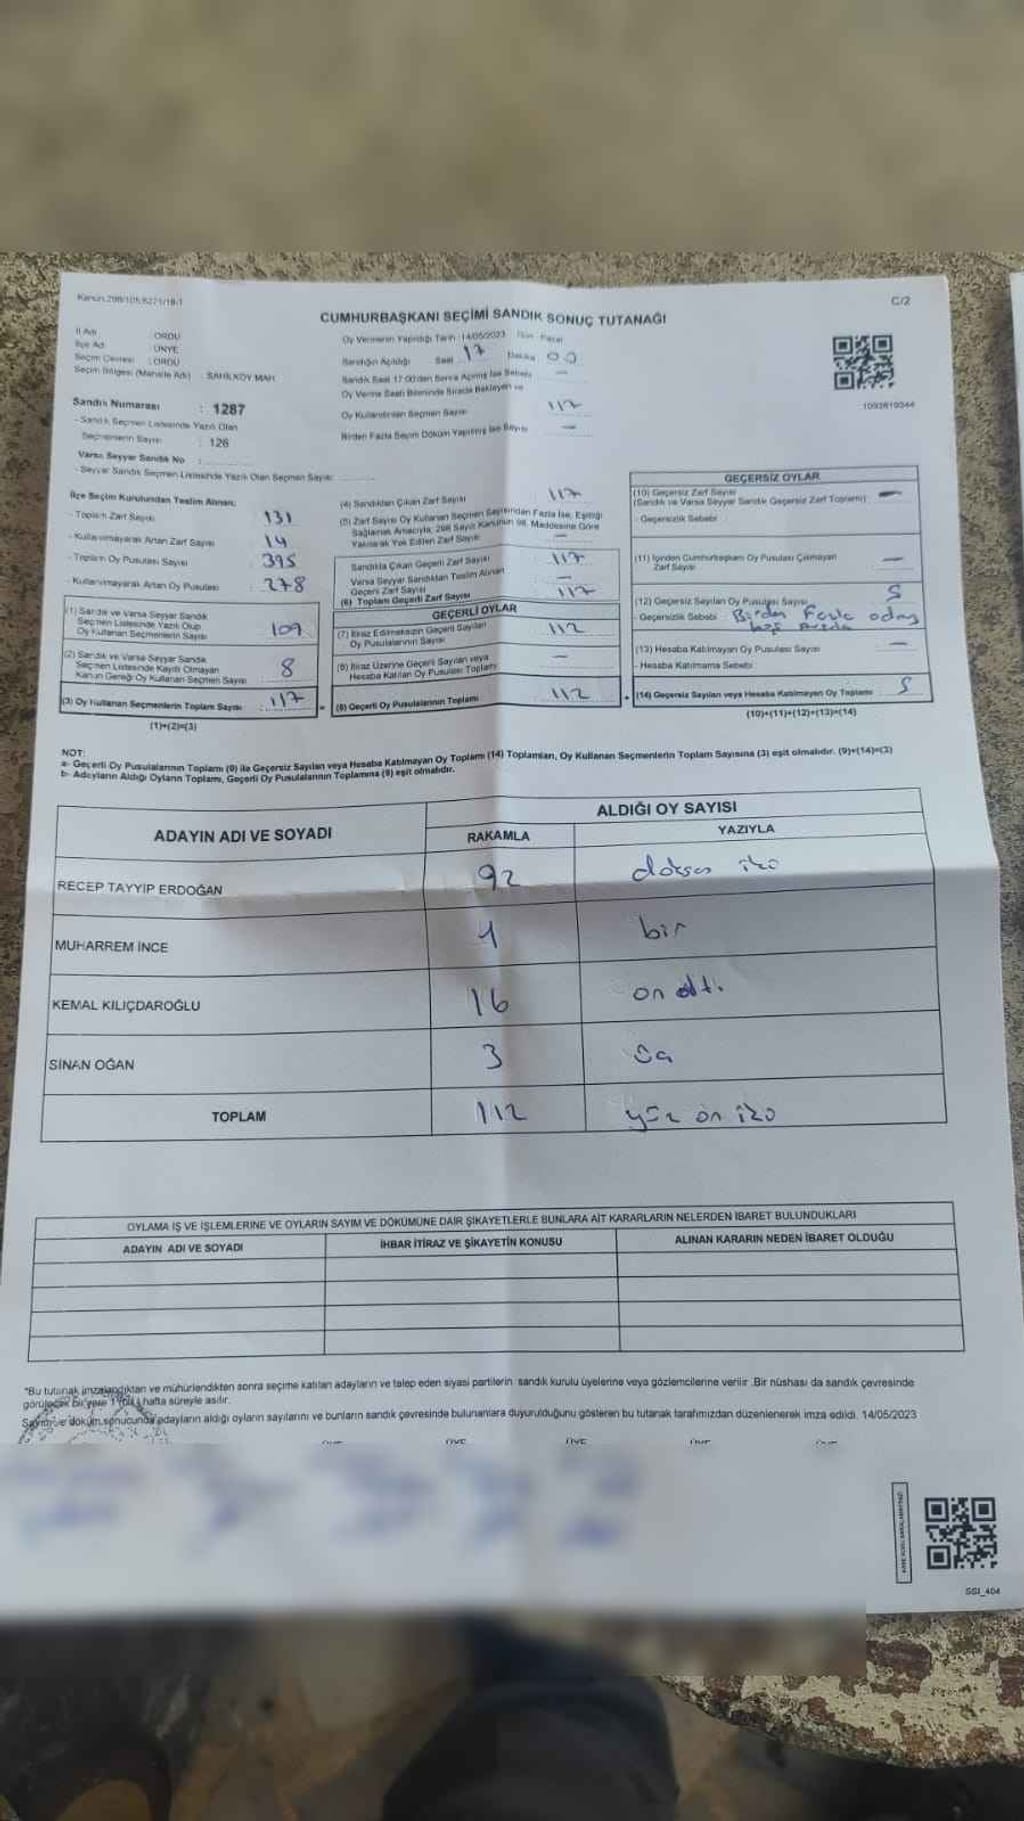 Kanun:298/105,6271/18/1
C/2
CUMHURBAŞKANI SEÇİMİ SANDIK SONUÇ TUTANAĞI
İl Adı : ORDU
İlçe Adı : ÜNYE
Seçim Çevresi : ORDU
Seçim Bölgesi (Mahalle Adı) : SAHİLKÖY MAH.
Sandık Numarası : 1287
- Sandık Seçmen Listesinde Yazılı Olan
Seçmenlerin Sayısı : 126
Varsa Seyyar Sandık No :
- Seyyar Sandık Seçmen Listesinde Yazılı Olan Seçmen Sayısı:
Oy Vermenin Yapıldığı Tarih : 14/05/2023 Gün : Pazar
Sandığın Açıldığı Saat 17 Dakika 00
Sandık Saat 17:00'den Sonra Açılmış İse Sebebi —
Oy Verme Saati Bitiminde Sırada Bekleyen ve
Oy Kullandırılan Seçmen Sayısı 117
Birden Fazla Seçim Döküm Yapılmış İse Sayısı —
1093619344
İlçe Seçim Kurulundan Teslim Alınan;
- Toplam Zarf Sayısı : 131
- Kullanılmayarak Artan Zarf Sayısı : 14
- Toplam Oy Pusulası Sayısı : 395
- Kullanılmayarak Artan Oy Pusulası : 278
(1) Sandık ve Varsa Seyyar Sandık
Seçmen Listesinde Yazılı Olup
Oy Kullanan Seçmenlerin Sayısı : 109
(2) Sandık ve Varsa Seyyar Sandık
Seçmen Listesinde Kayıtlı Olmayan
Kanun Gereği Oy Kullanan Seçmen Sayısı : 8
(3) Oy Kullanan Seçmenlerin Toplam Sayısı : 117
(1)+(2)=(3)
(4) Sandıktan Çıkan Zarf Sayısı 117
(5) Zarf Sayısı Oy Kullanan Seçmen Sayısından Fazla İse, Eşitliği
Sağlamak Amacıyla, 298 Sayılı Kanunun 98. Maddesine Göre
Yakılarak Yok Edilen Zarf Sayısı —
Sandıkta Çıkan Geçerli Zarf Sayısı 117
Varsa Seyyar Sandıktan Teslim Alınan
Geçerli Zarf Sayısı —
(6) Toplam Geçerli Zarf Sayısı 117
GEÇERLİ OYLAR
(7) İtiraz Edilmeksizin Geçerli Sayılan
Oy Pusulalarının Sayısı 112
(8) İtiraz Üzerine Geçerli Sayılan veya
Hesaba Katılan Oy Pusulası Toplamı —
(9) Geçerli Oy Pusulalarının Toplamı 112
GEÇERSİZ OYLAR
(10) Geçersiz Zarf Sayısı —
(Sandık ve Varsa Seyyar Sandık Geçersiz Zarf Toplamı)
- Geçersizlik Sebebi
(11) İçinden Cumhurbaşkanı Oy Pusulası Çıkmayan
Zarf Sayısı —
(12) Geçersiz Sayılan Oy Pusulası Sayısı 5
- Geçersizlik Sebebi : Birden Fazla
(13) Hesaba Katılmayan Oy Pusulası Sayısı —
- Hesaba Katılmama Sebebi
(14) Geçersiz Sayılan veya Hesaba Katılmayan Oy Toplamı 5
(10)+(11)+(12)+(13)=(14)
NOT:
a- Geçerli Oy Pusulalarının Toplamı (9) ile Geçersiz Sayılan veya Hesaba Katılmayan Oy Toplamı (14) Toplamları, Oy Kullanan Seçmenlerin Toplam Sayısına (3) eşit olmalıdır. (9)+(14)=(3)
b- Adayların Aldığı Oyların Toplamı, Geçerli Oy Pusulalarının Toplamına (9) eşit olmalıdır.
ADAYIN ADI VE SOYADI
ALDIĞI OY SAYISI
RAKAMLA YAZIYLA
RECEP TAYYİP ERDOĞAN 92 doksan iki
MUHARREM İNCE 1 bir
KEMAL KILIÇDAROĞLU 16 on altı
SİNAN OĞAN 3 üç
TOPLAM 112 yüz on iki
OYLAMA İŞ VE İŞLEMLERİNE VE OYLARIN SAYIM VE DÖKÜMÜNE DAİR ŞİKAYETLERLE BUNLARA AİT KARARLARIN NELERDEN İBARET BULUNDUKLARI
ADAYIN ADI VE SOYADI İHBAR İTİRAZ VE ŞİKAYETİN KONUSU ALINAN KARARIN NEDEN İBARET OLDUĞU
*Bu tutanak imzalandıktan ve mühürlendikten sonra seçime katılan adayların ve talep eden siyasi partilerin sandık kurulu üyelerine veya gözlemcilerine verilir. Bir nüshası da sandık çevresinde
görülecek bir yere 1 (bir) hafta süreyle asılır.
Sayım ve döküm sonucunda adayların aldığı oyların sayılarını ve bunların sandık çevresinde bulunanlara duyurulduğunu gösteren bu tutanak tarafımızdan düzenlenerek imza edildi. 14/05/2023
SSI_404